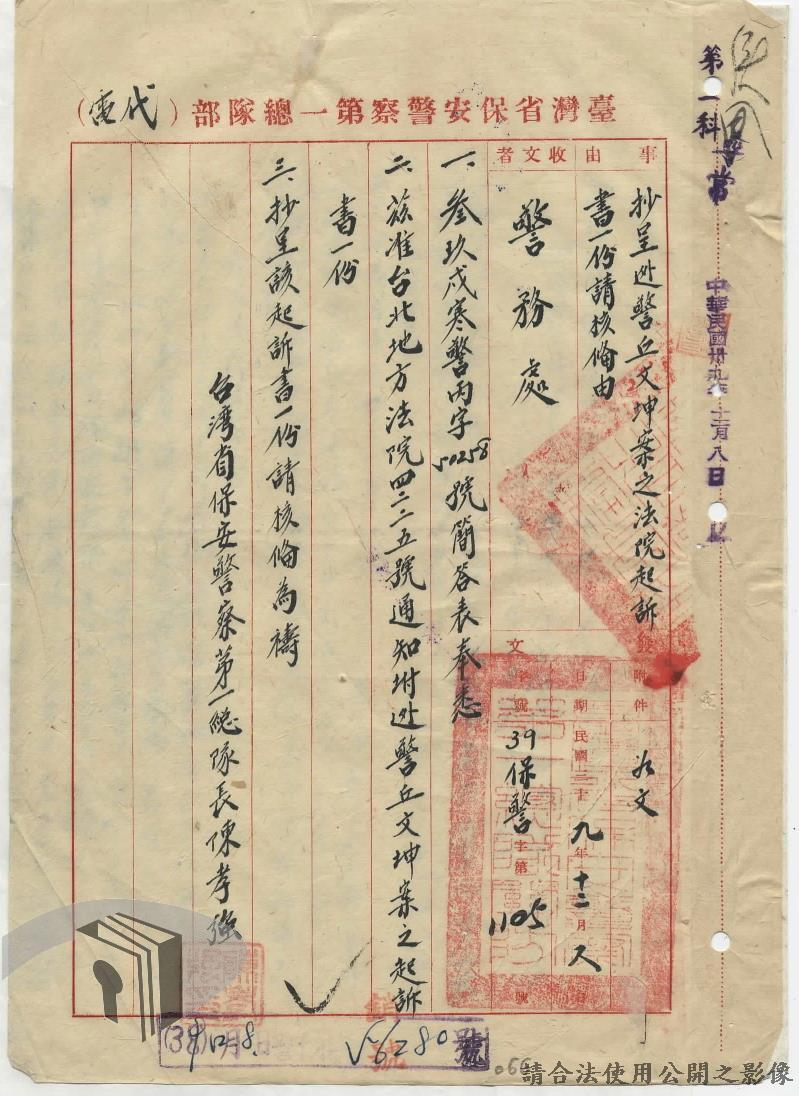 第一科
中華民國卅九年十二月八日
臺灣省保安警察第一總隊部(代電)
事由
抄呈逃警丘文坤案之法院起訴
書一份請核俻由
收文者
警務處
附件
如文
日期
民國三十九年十二月 日
發文
字號
39保警字第1105號
一、叁玖戍寒警丙字50258號簡答表奉悉
二、茲准台北地方法院四二二五號通知坿逃警丘文坤案之起訴
書一份
三、抄呈該起訴書一份請核俻為禱
台湾省保安警察第一總隊長陳孝強
(39)12月8.
56280號
號
.66
請合法使用公開之影像